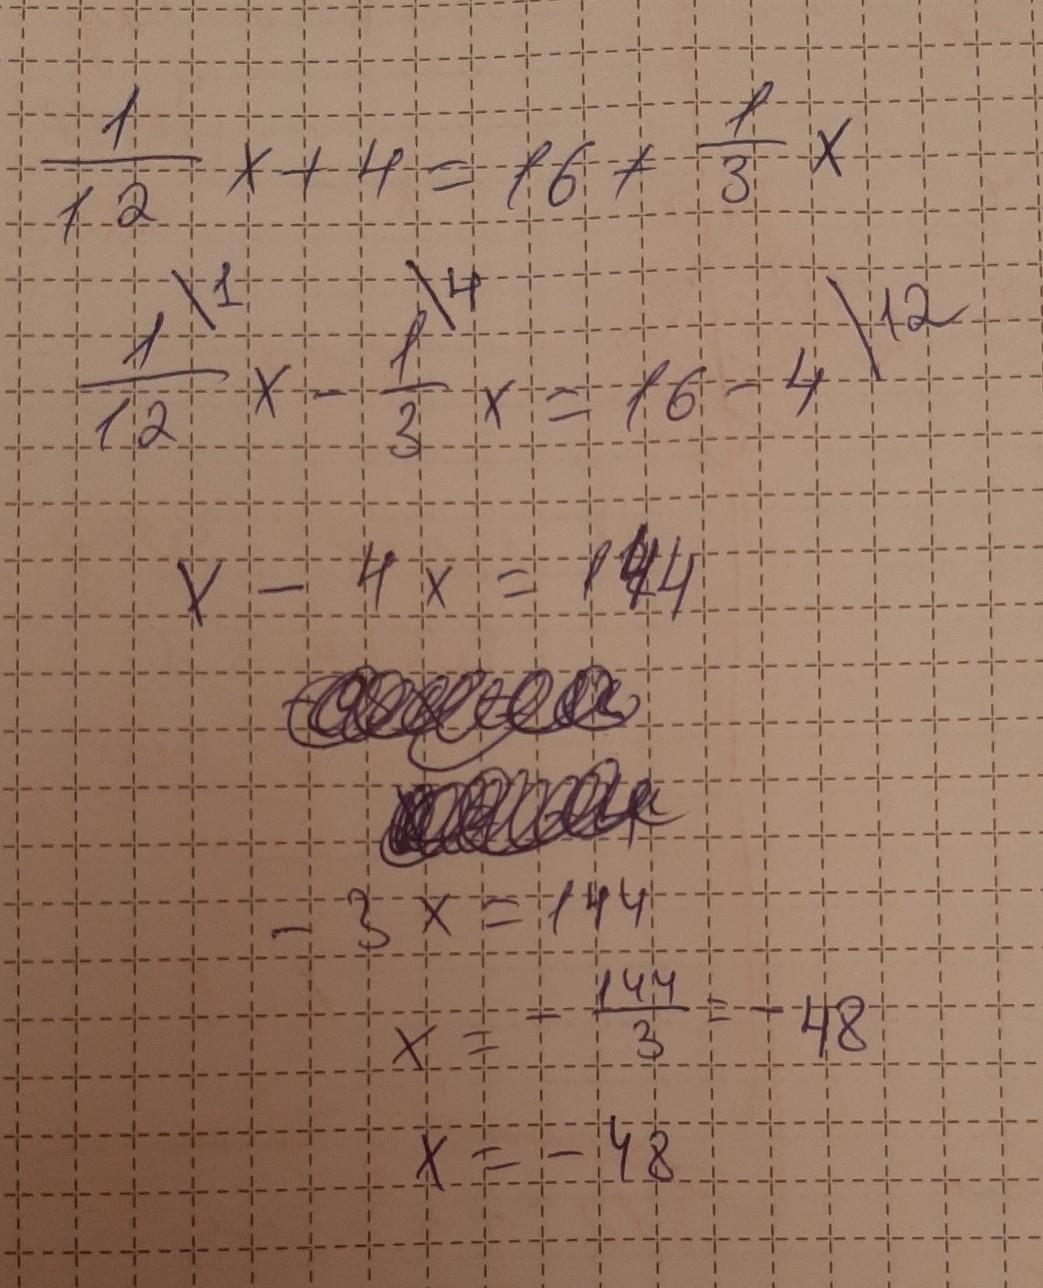 1/12 x + 4 = 16 + 1/3 x
1/12 \1 x - 1/3 \4 x = 16 - 4 \12
x - 4x = 144
- 3x = 144
x = - 144/3 = - 48
x = - 48